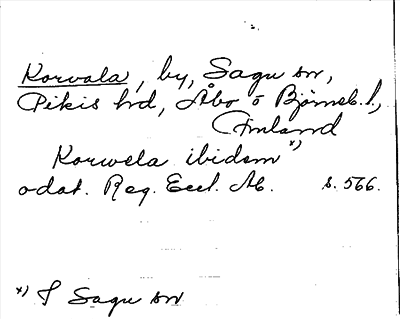 Korvala, by, Sagu sn,
Pikis hd, Åbo o Björneb. l.,
Finland
Korwela ibidem *)
odat. Reg. Eccl. Ab. s. 566.
*) I Sagu sn